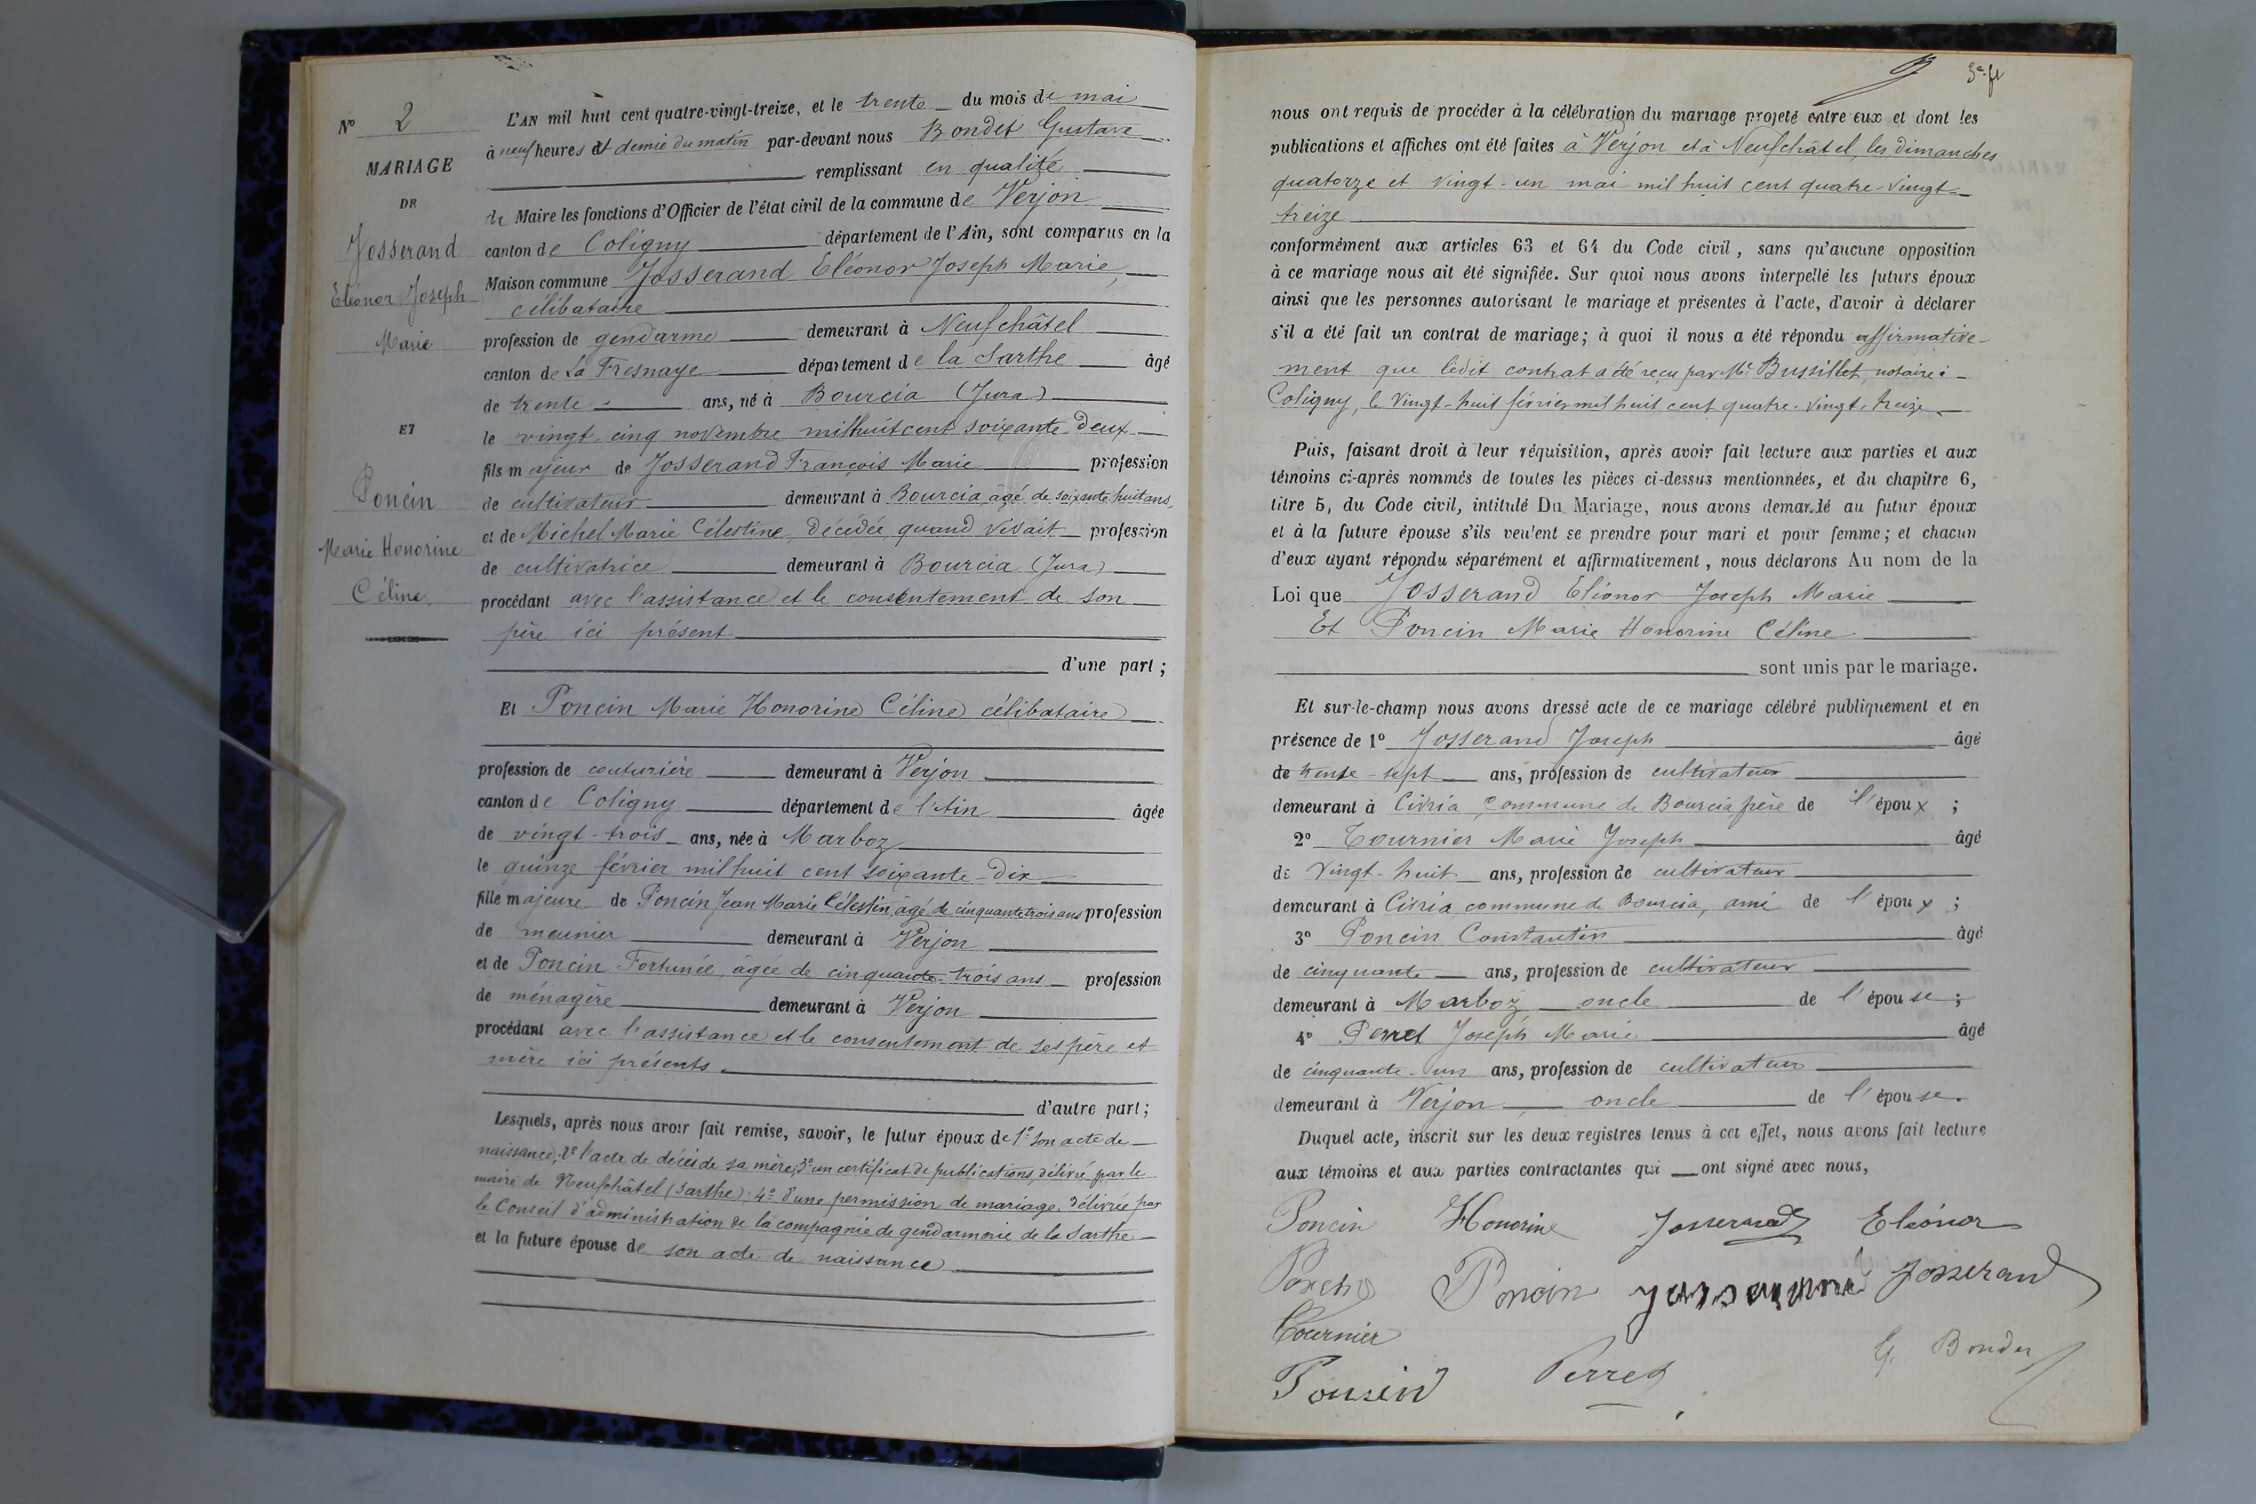 N° 2
MARIAGE
DE
Josserand
Eléonor Joseph
Marie
ET
Poncin
Marie Honorine
Céline
L'AN mil huit cent quatre-vingt-treize, et le trente du mois de mai
à neuf heures et demie du matin par-devant nous Bondet Gustave
remplissant en qualité
de Maire les fonctions d'Officier de l'état civil de la commune de Verjon
canton de Coligny département de l'Ain, sont comparus en la
Maison commune Josserand Eléonor Joseph Marie,
célibataire
profession de gendarme demeurant à Neufchâtel
canton de La Fresnaye département de la Sarthe âgé
de trente ans, né à Bourcia (Jura)
le vingt-cinq novembre mil huit cent soixante-deux
fils majeur de Josserand François Marie profession
de cultivateur demeurant à Bourcia, âgé de soixante huit ans,
et de Michel Marie Célestine, décédée, quand vivait profession
de cultivatrice demeurant à Bourcia (Jura)
procédant avec l'assistance et le consentement de son
père ici présent
d'une part ;
Et Poncin Marie Honorine Céline célibataire
profession de couturière demeurant à Verjon
canton de Coligny département de l'Ain âgée
de vingt-trois ans, née à Marboz
le quinze février mil huit cent soixante-dix
fille majeure de Poncin Jean Marie Célestin, âgé de cinquante trois ans profession
de meunier demeurant à Verjon
et de Poncin Fortunée, âgée de cinquante-trois ans profession
de ménagère demeurant à Verjon
procédant avec l'assistance et le consentement de ses père et
mère ici présents.
d'autre part ;
Lesquels, après nous avoir fait remise, savoir, le futur époux de 1° son acte de
naissance, 2° l'acte de décès de sa mère, 3° un certificat de publications, délivré par le
maire de Neufchâtel (Sarthe) 4° d'une permission de mariage, délivrée par
le Conseil d'administration de la compagnie de gendarmerie de la Sarthe
et la future épouse de son acte de naissance
3e ft
nous ont requis de procéder à la célébration du mariage projeté entre eux et dont les
publications et affiches ont été faites à Verjon et à Neufchâtel, les dimanches
quatorze et vingt-un mai mil huit cent quatre-vingt-
treize
conformément aux articles 63 et 64 du Code civil, sans qu'aucune opposition
à ce mariage nous ait été signifiée. Sur quoi nous avons interpellé les futurs époux
ainsi que les personnes autorisant le mariage et présentes à l'acte, d'avoir à déclarer
s'il a été fait un contrat de mariage; à quoi il nous a été répondu affirmative-
ment que ledit contrat a été reçu par Me Bussillet, notaire à
Coligny, le vingt-huit février mil huit cent quatre-vingt-treize.
Puis, faisant droit à leur réquisition, après avoir fait lecture aux parties et aux
témoins ci-après nommés de toutes les pièces ci-dessus mentionnées, et du chapitre 6,
titre 5, du Code civil, intitulé Du Mariage, nous avons demandé au futur époux
et à la future épouse s'ils veulent se prendre pour mari et pour femme; et chacun
d'eux ayant répondu séparément et affirmativement, nous déclarons Au nom de la
Loi que Josserand Eléonor Joseph Marie
Et Poncin Marie Honorine Céline
sont unis par le mariage.
Et sur-le-champ nous avons dressé acte de ce mariage célébré publiquement et en
présence de 1° Josserand Joseph âgé
de trente-sept ans, profession de cultivateur
demeurant à Civria commune de Bourcia frère de l'époux ;
2° Tournier Marie Joseph âgé
de vingt-huit ans, profession de cultivateur
demeurant à Civria commune de Bourcia, ami de l'époux ;
3° Poncin Constantin âgé
de cinquante ans, profession de cultivateur
demeurant à Marboz oncle de l'épouse ;
4° Perret Joseph Marie âgé
de cinquante-un ans, profession de cultivateur
demeurant à Verjon, oncle de l'épouse.
Duquel acte, inscrit sur les deux registres tenus à cet effet, nous avons fait lecture
aux témoins et aux parties contractantes qui ont signé avec nous,
Poncin Honorine Josserand Eléonor
Poncin Josserand
Tournier
G. Bondet
Perret